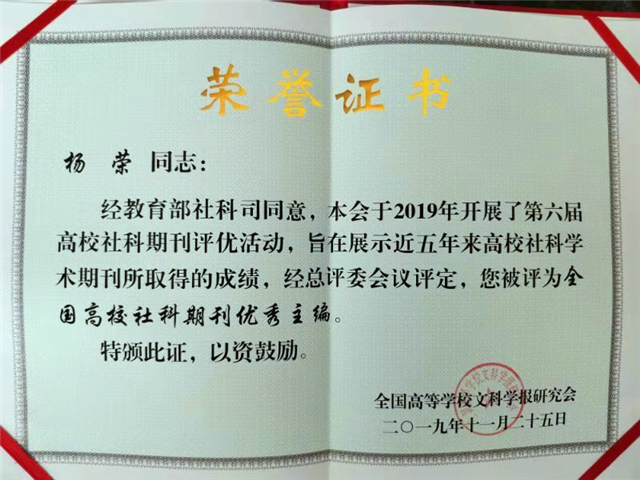 荣誉证书
杨荣 同志：
经教育部社科司同意，本会于2019年开展了第六届
高校社科期刊评优活动，旨在展示近五年来高校社科学
术期刊所取得的成绩，经总评委会议评定，您被评为全
国高校社科期刊优秀主编。
特颁此证，以资鼓励。
全国高等学校文科学报研究会
二〇一九年十一月二十五日